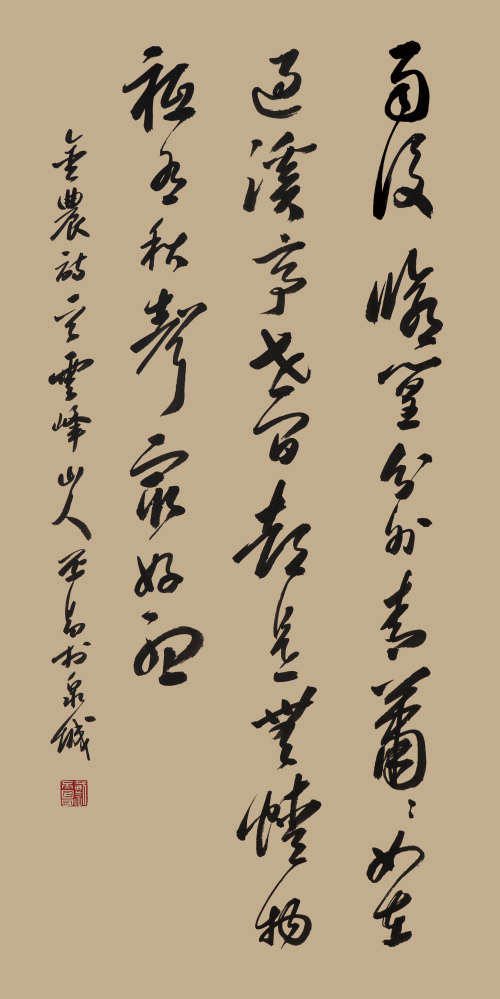 雨後脩篁分外青蕭〻如在
過溪亭世間都是無情物
祗有秋聲最好聽
金農詩雲峰山人於泉城